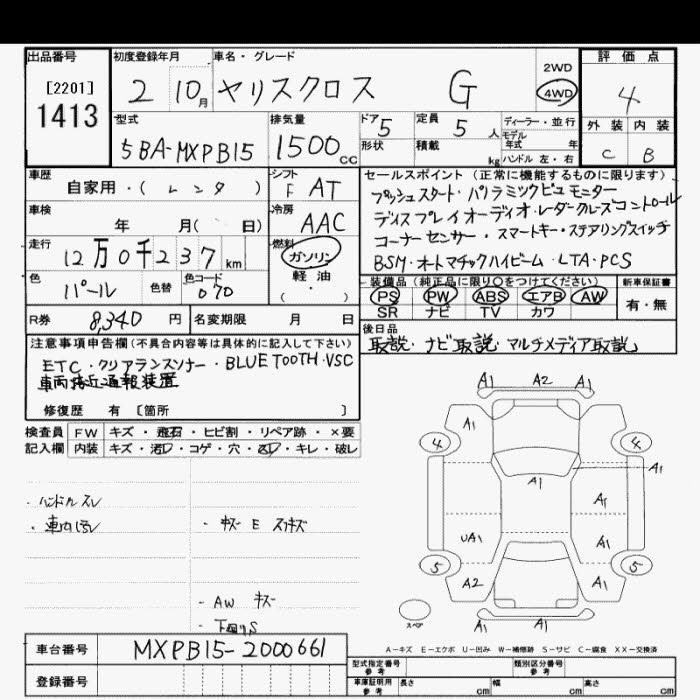 出品番号 初度登録年月 車名・グレード 評価点
[2201]
1413
2 10月 ヤリスクロス G 2WD 4WD 4
型式 排気量 ドア 5 定員 5人 ディーラー・並行 外装 内装
5BA-MXPB15 1500cc 形状 積載 kg モデル年式 年 C B
ハンドル 左・右
車歴 シフト セールスポイント(正常に機能するものに限ります)
自家用・(レンタ) F AT プッシュスタート・パノラミックビューモニター
車検 冷房 ディスプレイオーディオ・レーダークルーズコントロール
年 月( 日) AAC コーナーセンサー・スマートキー・ステアリングスイッチ
走行 燃料 BSM・オートマチックハイビーム・LTA・PCS
12万0千237km ガソリン
軽油
・
色 色替 色コード 装備品(純正品に限り〇をつけてください) 新車保証書
パール 070 PS PW ABS エアB AW 有・無
SR ナビ TV カワ
R券 8,340円 名変期限 月 日 後日品
取説・ナビ取説・マルチメディア取説
注意事項申告欄(不具合内容等は具体的に記入して下さい)
ETC・クリアランスソナー・BLUETOOTH・VSC
車両接近通報装置
修復歴 有 [箇所 ]
検査員 FW キズ・飛石・ヒビ割・リペア跡・×要
記入欄 内装 キズ・汚れ・コゲ・穴・凹・キレ・破レ
・ハンドルスレ
・車内汚レ
・キズ E スリキズ
- AW キズ
- 下回りS
A1 A2 A1
A1
4 4
A1 A1
A1
UA1 A1
5 5
A2 A1
A1 A1
スペア
A-キズ E-エクボ U-凹み W-補修跡 S-サビ C-腐食 XX-交換済
車台番号 MXPB15-2000661
登録番号
型式指定番号 参考 類別区分番号 参考
車庫証明用 参考 長さ cm 幅 cm 高さ cm